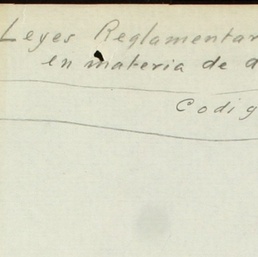 Leyes Reglamentar
en materia de d
Codig